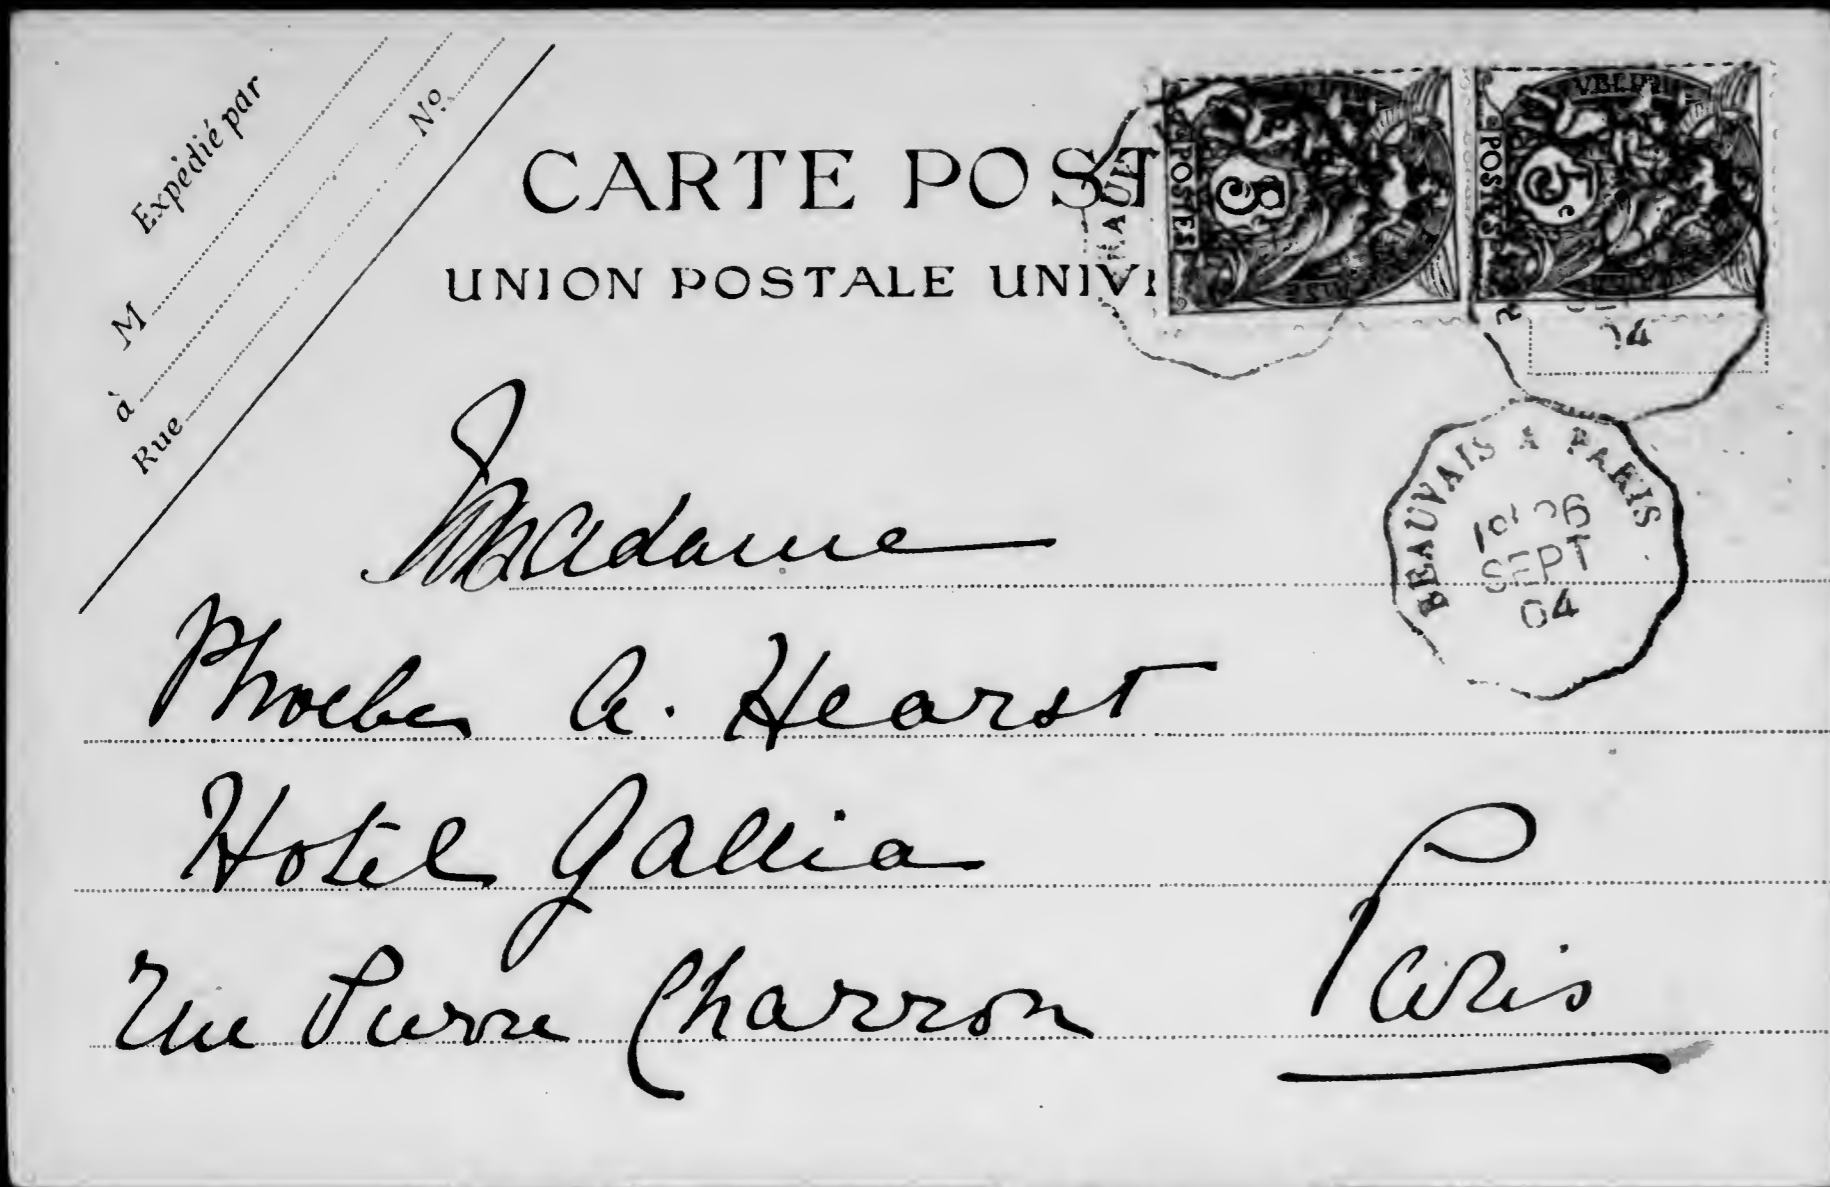 Expédié par
M
à
Rue
Nº
CARTE POST
UNION POSTALE UNIV
POSTES
POSTES
5c
04
BEAUVAIS A PARIS
SEPT
04
Madame
Phoebe A. Hearst
Hotel Gallia
Rue Pierre Charron
Paris